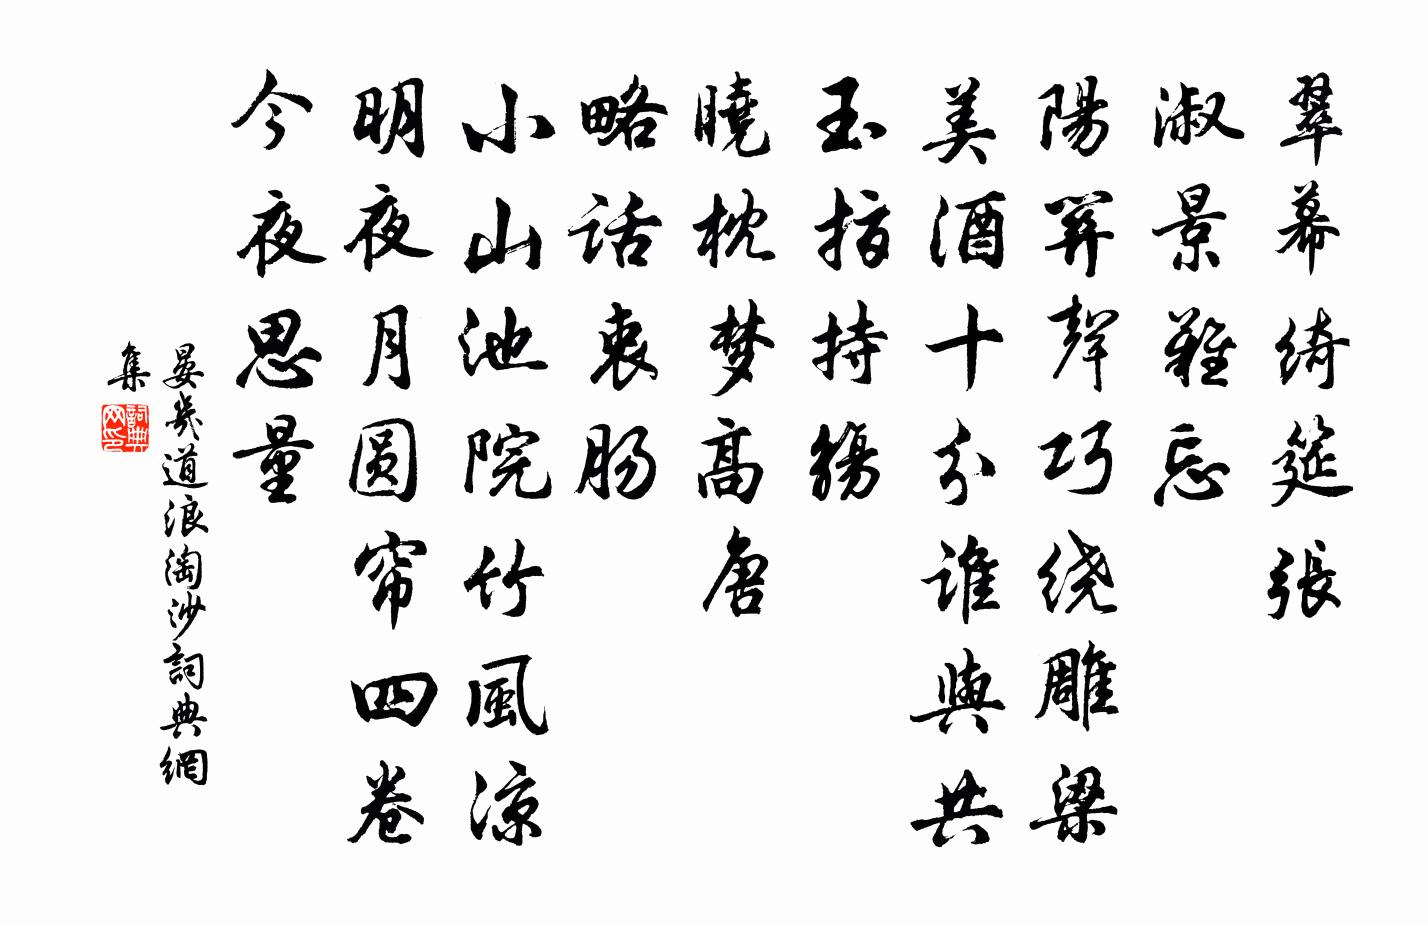 翠幕綺筵張
淑景難忘
陽關聲巧绕雕梁
美酒十分谁與共
玉指持觴
曉枕梦高唐
略話衷肠
小山池院竹風涼
明夜月圆帘四卷
今夜思量
晏幾道浪淘沙詞典網
集
詞典
网印